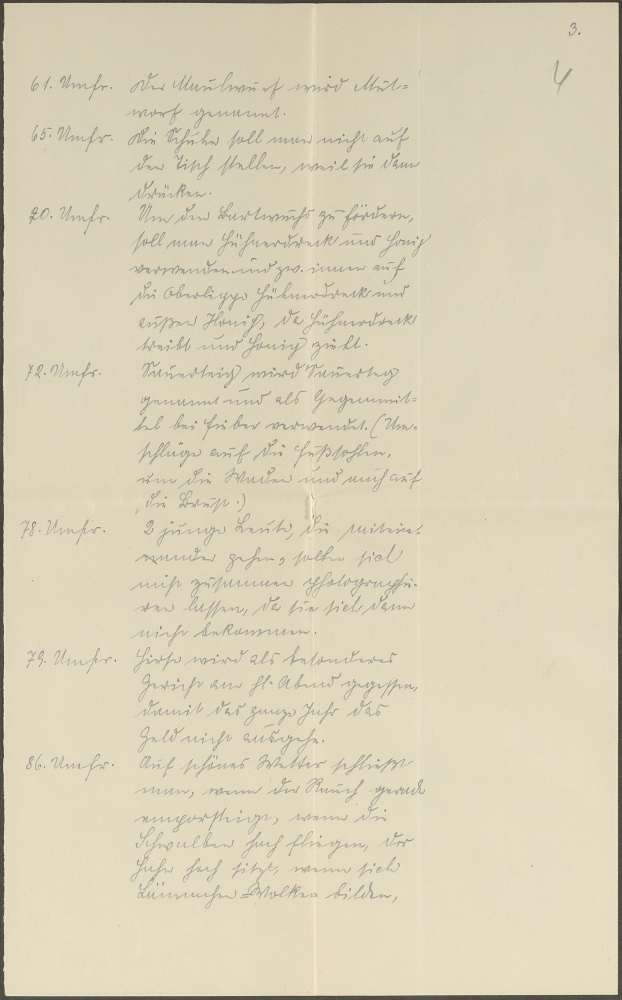 3.
4
61. Umfr. Der Maulwurf wird Mut=
worf genannt.
65. Umfr. Die Schuhe soll man nicht auf
den Tisch stellen, weil sie dann
drücken.
70. Umfr. Um den Bartwuchs zu fördern,
soll man Hühnerdreck und Honig
verwenden und zw. innen auf
die Oberlippe Hühnerdreck und
außen Honig, da Hühnerdreck
treibt und Honig zieht.
72. Umfr. Sauerteig wird Sauerteg
genannt und als Gegenmit=
tel bei Fieber verwendet. (Um-
schläge auf die Fußsohlen,
um die Waden und auch auf
die Brust.)
78. Umfr. 2 junge Leute, die mitein
ander gehen, sollen sich
nicht zusammen photographie-
ren lassen, da sie sich dann
nicht bekommen.
79. Umfr. Hirse wird als besonderes
Gericht am hl. Abend gegessen,
damit das ganze Jahr das
Geld nicht ausgehe.
86. Umfr. Auf schönes Wetter schließt
man, wenn der Rauch gerade
emporsteigt, wenn die
Schwalben hoch fliegen, der
Hahn hoch sitzt, wenn sich
Lämmchen-Wolken bilden,